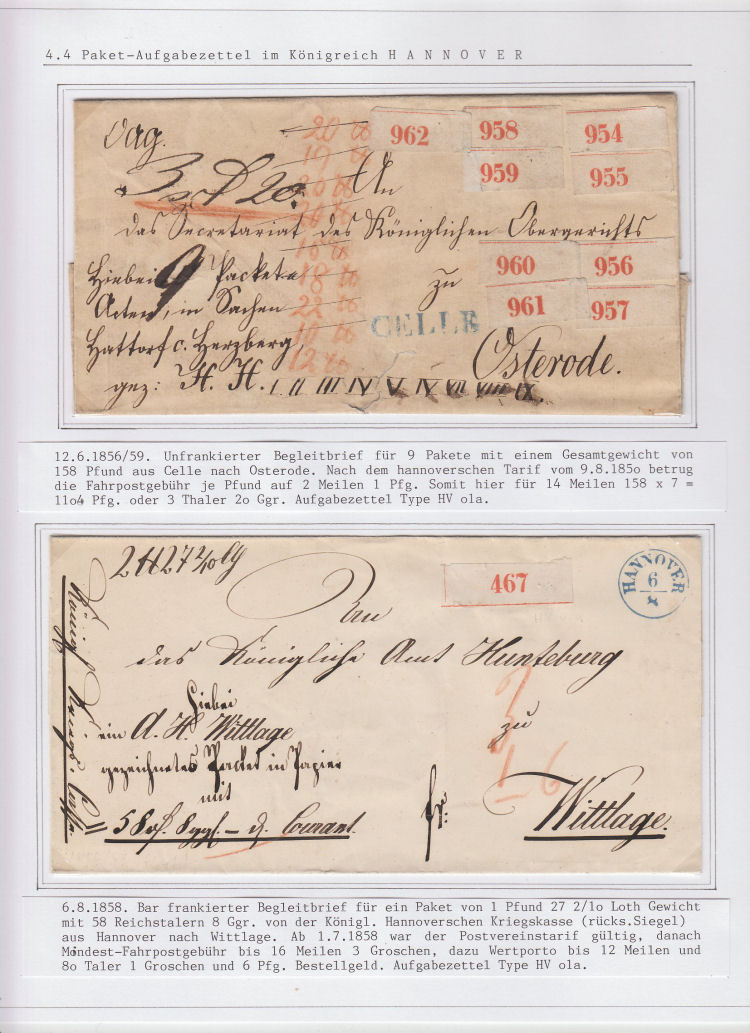 4.4 Paket-Aufgabezettel im Königreich H A N N O V E R
962 958 954
959 955
An
das Secretariat des Königlichen Obergerichts
Hiebei 9 Packete zu
960 956
961 957
Acten, in Sachen
CELLE
Hattorf c. Herzberg,
Osterode.
gez: H. H. I II III IV V VI VII VIII IX.
12.6.1856/59. Unfrankierter Begleitbrief für 9 Pakete mit einem Gesamtgewicht von
158 Pfund aus Celle nach Osterode. Nach dem hannoverschen Tarif vom 9.8.185o betrug
die Fahrpostgebühr je Pfund auf 2 Meilen 1 Pfg. Somit hier für 14 Meilen 158 x 7 =
11o4 Pfg. oder 3 Thaler 2o Ggr. Aufgabezettel Type HV ola.
467
HANNOVER
6
8
das Königliche Amt Hunteburg
Hiebei
ein A. H. Wittlage zu
gezeichnetes Packet in Papier
mit
Courant.
fr. Wittlage.
1-6
6.8.1858. Bar frankierter Begleitbrief für ein Paket von 1 Pfund 27 2/1o Loth Gewicht
mit 58 Reichstalern 8 Ggr. von der Königl. Hannoverschen Kriegskasse (rücks.Siegel)
aus Hannover nach Wittlage. Ab 1.7.1858 war der Postvereinstarif gültig, danach
Mindest-Fahrpostgebühr bis 16 Meilen 3 Groschen, dazu Wertporto bis 12 Meilen und
8o Taler 1 Groschen und 6 Pfg. Bestellgeld. Aufgabezettel Type HV ola.